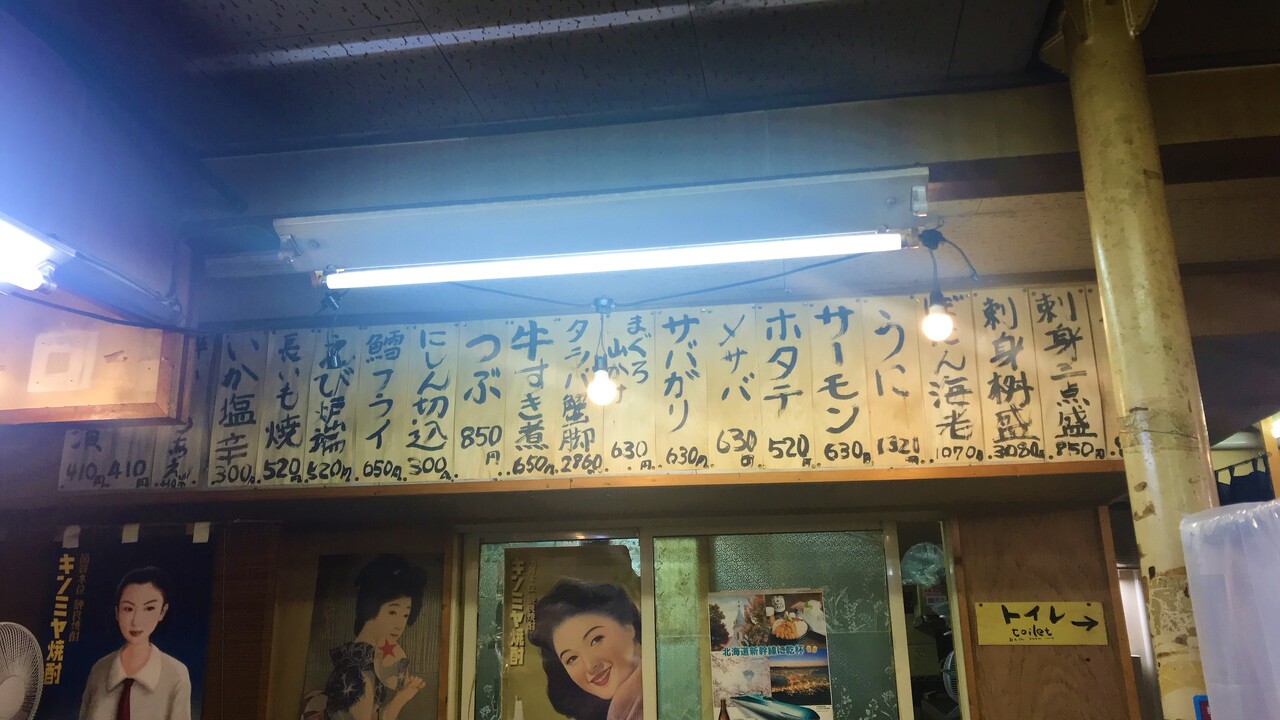 刺身二点盛
850円
刺身桝盛
3080円
ぼたん海老
1070円
うに
1320円
サーモン
630円
ホタテ
520円
〆サバ
630円
サバガリ
630円
まぐろ
山かけ
630円
タラバ蟹脚
2860
牛すき煮
650円
つぶ
850円
にしん切込
300円
鱈フライ
650円
えび炉端
520円
長いも焼
520円
いか塩辛
300円
410円
410円
キンミヤ焼酎
キンミヤ焼酎
北海道新幹線に乾杯
トイレ
toilet